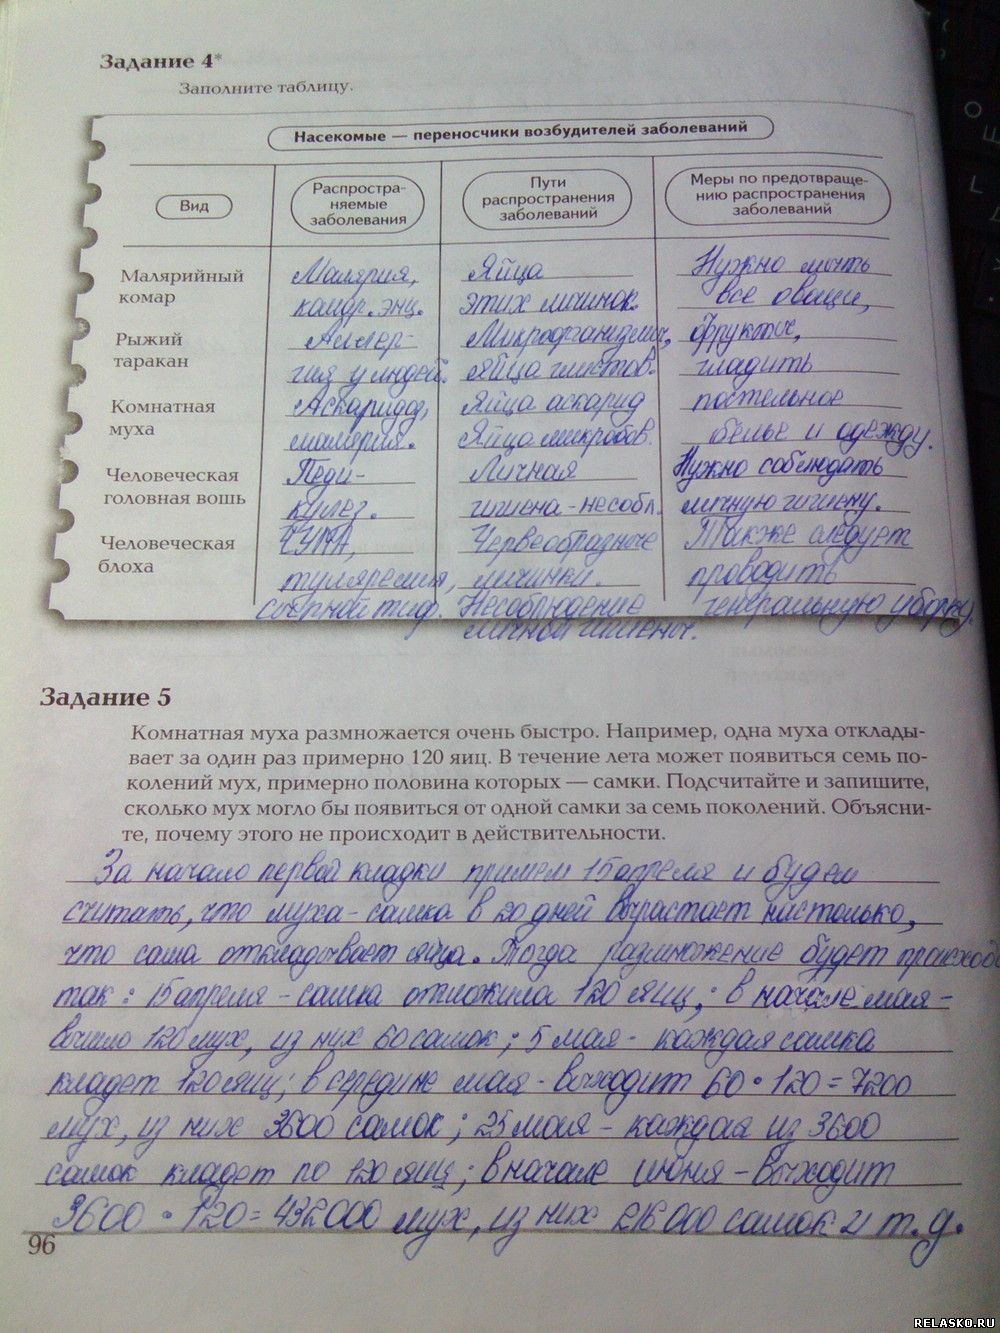 Задание 4*
Заполните таблицу.
Насекомые — переносчики возбудителей заболеваний
Вид
Распростра-
няемые
заболевания
Пути
распространения
заболеваний
Меры по предотвраще-
нию распространения
заболеваний
Малярийный
комар
Малярия,
Яйца
этих личинок.
Нужно мыть
все овощи,
Рыжий
таракан
Аллер-
гия у людей.
Микроорганизмы,
яйца глистов.
фрукты,
гладить
Комнатная
муха
Аскаридоз,
малярия.
Яйца аскарид
Яйца микробов.
постельное
белье и одежду.
Человеческая
головная вошь
Педи-
кулез.
Личная
гигиена - несобл.
Нужно соблюдать
личную гигиену.
Человеческая
блоха
чума,
туляремия,
сыпной тиф.
Червеобразные
личинки.
Несоблюдение
личной гигиены.
Также следует
проводить
генеральную уборку.
Задание 5
Комнатная муха размножается очень быстро. Например, одна муха отклады-
вает за один раз примерно 120 яиц. В течение лета может появиться семь по-
колений мух, примерно половина которых — самки. Подсчитайте и запишите,
сколько мух могло бы появиться от одной самки за семь поколений. Объясни-
те, почему этого не происходит в действительности.
За начало первой кладки примем 15 апреля и будем
считать, что муха - самка в 20 дней вырастает настолько,
что сама откладывает яйца. Тогда размножение будет происход
так: 15 апреля - самка отложила 120 яиц; в начале мая -
вышло 120 мух, из них 60 самок; 5 мая - каждая самка
кладет 120 яиц; в середине мая - выходит 60 · 120 = 7200
мух, из них 3600 самок; 25 мая - каждая из 3600
самок кладет по 120 яиц; в начале июня - выходит
3600 · 120 = 432000 мух, из них 216000 самок и т.д.
96
RELASKO.RU